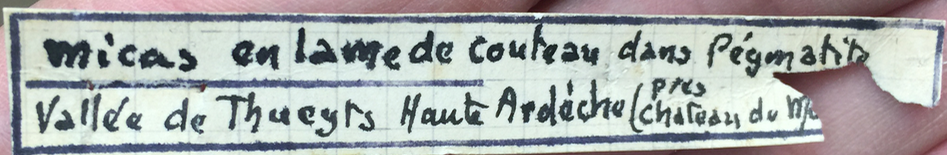 micas en lame de couteau dans Pégmatite
Vallée de Thueyts Haute Ardèche (près
chateau du